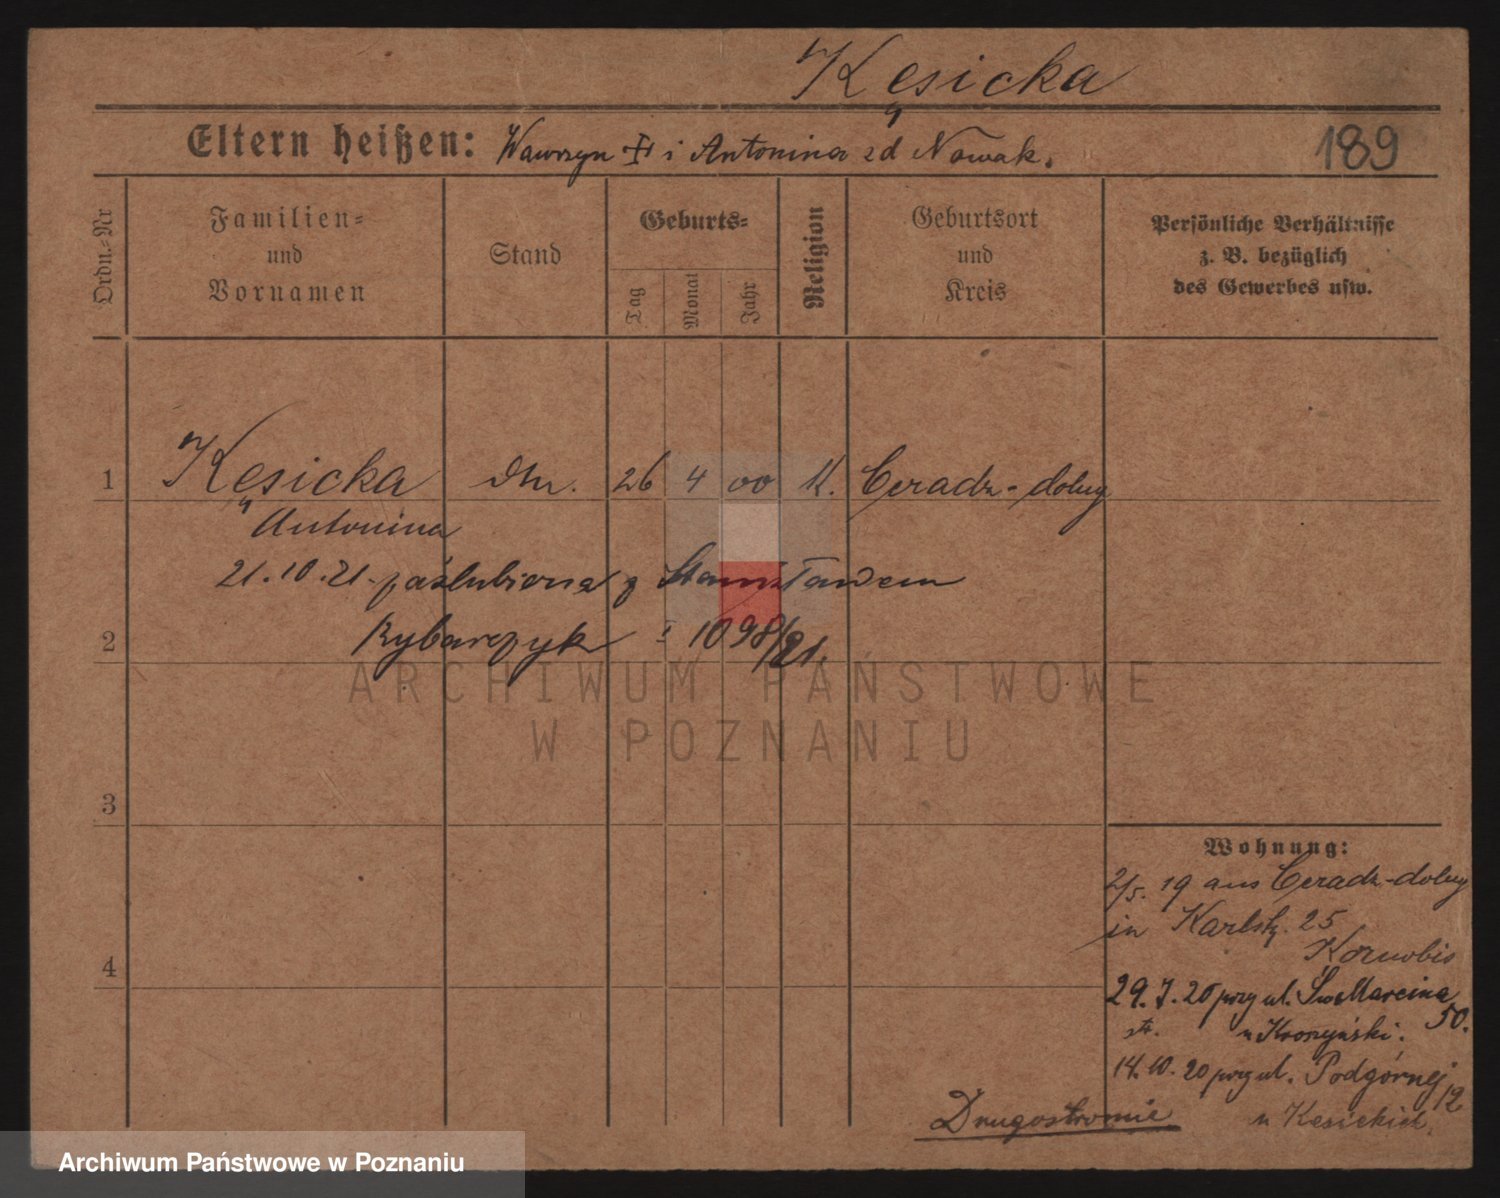 Kęsicka
Eltern heißen: Wawrzyn i Antonina zd Nowak.
189
Ordn.=Nr
Familien=
und
Vornamen
Stand
Geburts=
Tag
Monat
Jahr
Religion
Geburtsort
und
Kreis
Persönliche Verhältnisse
z. B. bezüglich
des Gewerbes usw.
1 Kęsicka 26 4 00 K. Ceradz-dolny
Antonina
21.10.21. paślubiona z Stanisławem
2 Rybarczyk 1098/21.
ARCHIWUM PAŃSTWOWE
W POZNANIU
3
4
Wohnung:
2/5. 19 aus Ceradz-dolny
in Karlstr. 25
29.7.20 przy ul. Św Marcina
50.
u
14.10.20 przy ul. Podgórnej
12
u Kęsickich.
Drugostronie
Archiwum Państwowe w Poznaniu